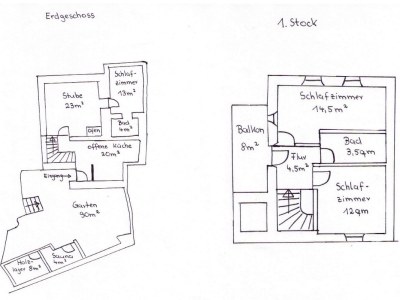 Erdgeschoss
Schlaf-
zimmer
13m²
Stube
23m²
Bad
4m²
Ofen
offene Küche
20m²
Eingang
Garten
90m²
Holz-
lager 8m²
Sauna
4m²
1. Stock
Schlafzimmer
14,5m²
Balkon
8m²
Bad
3,5qm
Flur
4,5m²
Schlaf-
zimmer
12qm